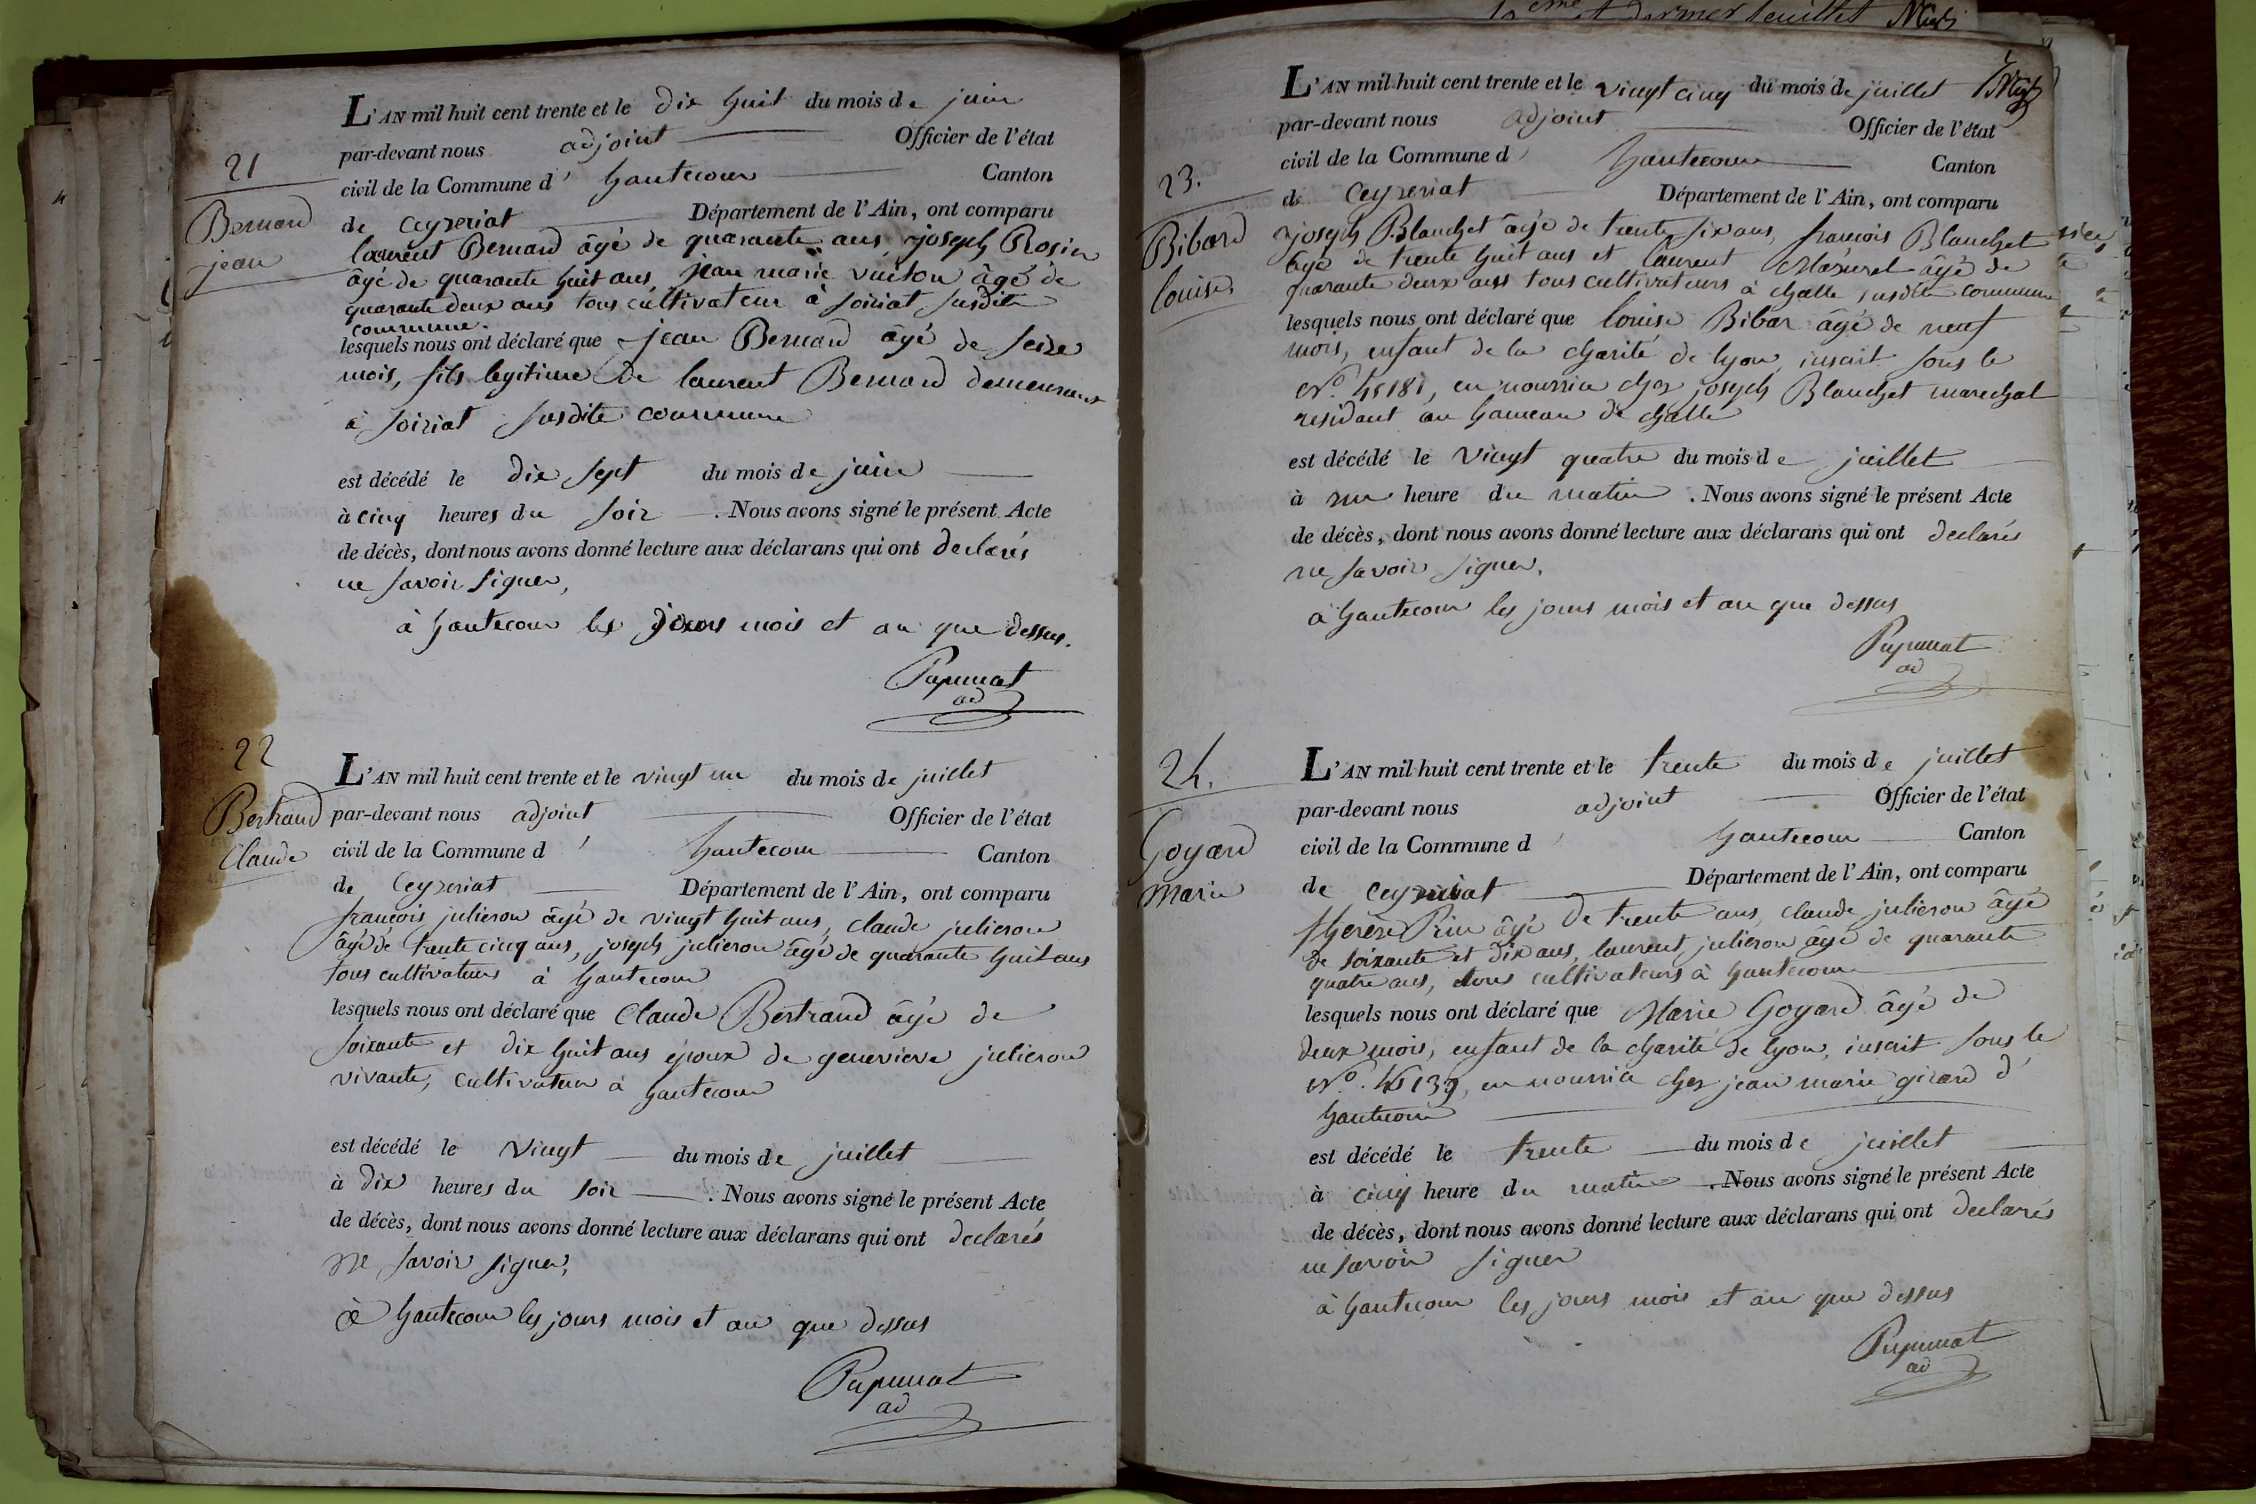 21
Bernard
jean
L'AN mil huit cent trente et le dix huit du mois de juin
par-devant nous adjoint Officier de l'état
civil de la Commune d' hautecour Canton
de Ceyzeriat Département de l'Ain, ont comparu
laurent Bernard âgé de quarante ans joseph Rosier
âgé de quarante huit ans, jean marie vuiton âgé de
quarante deux ans tous cultivateur à soiriat susdite
commune.
lesquels nous ont déclaré que jean Bernard âgé de seize
mois, fils legitime de laurent Bernard demeurant
à soiriat susdite commune
est décédé le dix sept du mois de juin
à cinq heures du soir. Nous avons signé le présent Acte
de décès, dont nous avons donné lecture aux déclarans qui ont declarés
ne savoir signer,
à hautecour les jours mois et an que dessus.
Papunat
ad
22
Bertrand
Claude
L'AN mil huit cent trente et le vingt un du mois de juillet
par-devant nous adjoint Officier de l'état
civil de la Commune d' hautecour Canton
de Ceyzeriat Département de l'Ain, ont comparu
françois julieron âgé de vingt huit ans, claude julieron
âgé de trente cinq ans, joseph julieron âgé de quarante huit ans
tous cultivateurs à hautecour
lesquels nous ont déclaré que Claude Bertrand âgé de
soixante et dix huit ans époux de genevieve julieron
vivante, cultivateur à hautecour
est décédé le vingt du mois de juillet
à dix heures du soir. Nous avons signé le présent Acte
de décès, dont nous avons donné lecture aux déclarans qui ont declarés
ne savoir signer,
à hautecour les jours mois et an que dessus
Papunat
ad
dernier feuillet
23.
Bibard
louise.
L'AN mil huit cent trente et le vingt cinq du mois de juillet
par-devant nous adjoint Officier de l'état
civil de la Commune d' hautecour Canton
de Ceyzeriat Département de l'Ain, ont comparu
joseph Blanchet âgé de trente six ans, françois Blanchet
âgé de trente huit ans et laurent Mazuret âgé de
quarante deux ans tous cultivateurs à challe susdite commune
lesquels nous ont déclaré que louise Bibar âgé de neuf
mois, enfant de la charité de lyon, inscrit sous le
N° 45181, en nourrice chez joseph Blanchet marechal
residant au hameau de challe
est décédé le vingt quatre du mois de juillet
à une heure du matin. Nous avons signé le présent Acte
de décès, dont nous avons donné lecture aux déclarans qui ont declarés
ne savoir signer.
à hautecour les jours mois et an que dessus
Papunat
ad
24.
Goyard
Marie
L'AN mil huit cent trente et le trente du mois de juillet
par-devant nous adjoint Officier de l'état
civil de la Commune d' hautecour Canton
de ceyzeriat Département de l'Ain, ont comparu
therèse Prin âgé de trente ans, claude julieron âgé
de soixante et dix ans, laurent julieron âgé de quarante
quatre ans, tous cultivateurs à hautecour
lesquels nous ont déclaré que Marie Goyard âgé de
deux mois, enfant de la charité de lyon, inscrit sous le
N° 46139, en nourrice chez jean marie girard d'
hautecour
est décédé le trente du mois de juillet
à cinq heure du matin. Nous avons signé le présent Acte
de décès, dont nous avons donné lecture aux déclarans qui ont declarés
ne savoir signer
à hautecour les jours mois et an que dessus
Papunat
ad